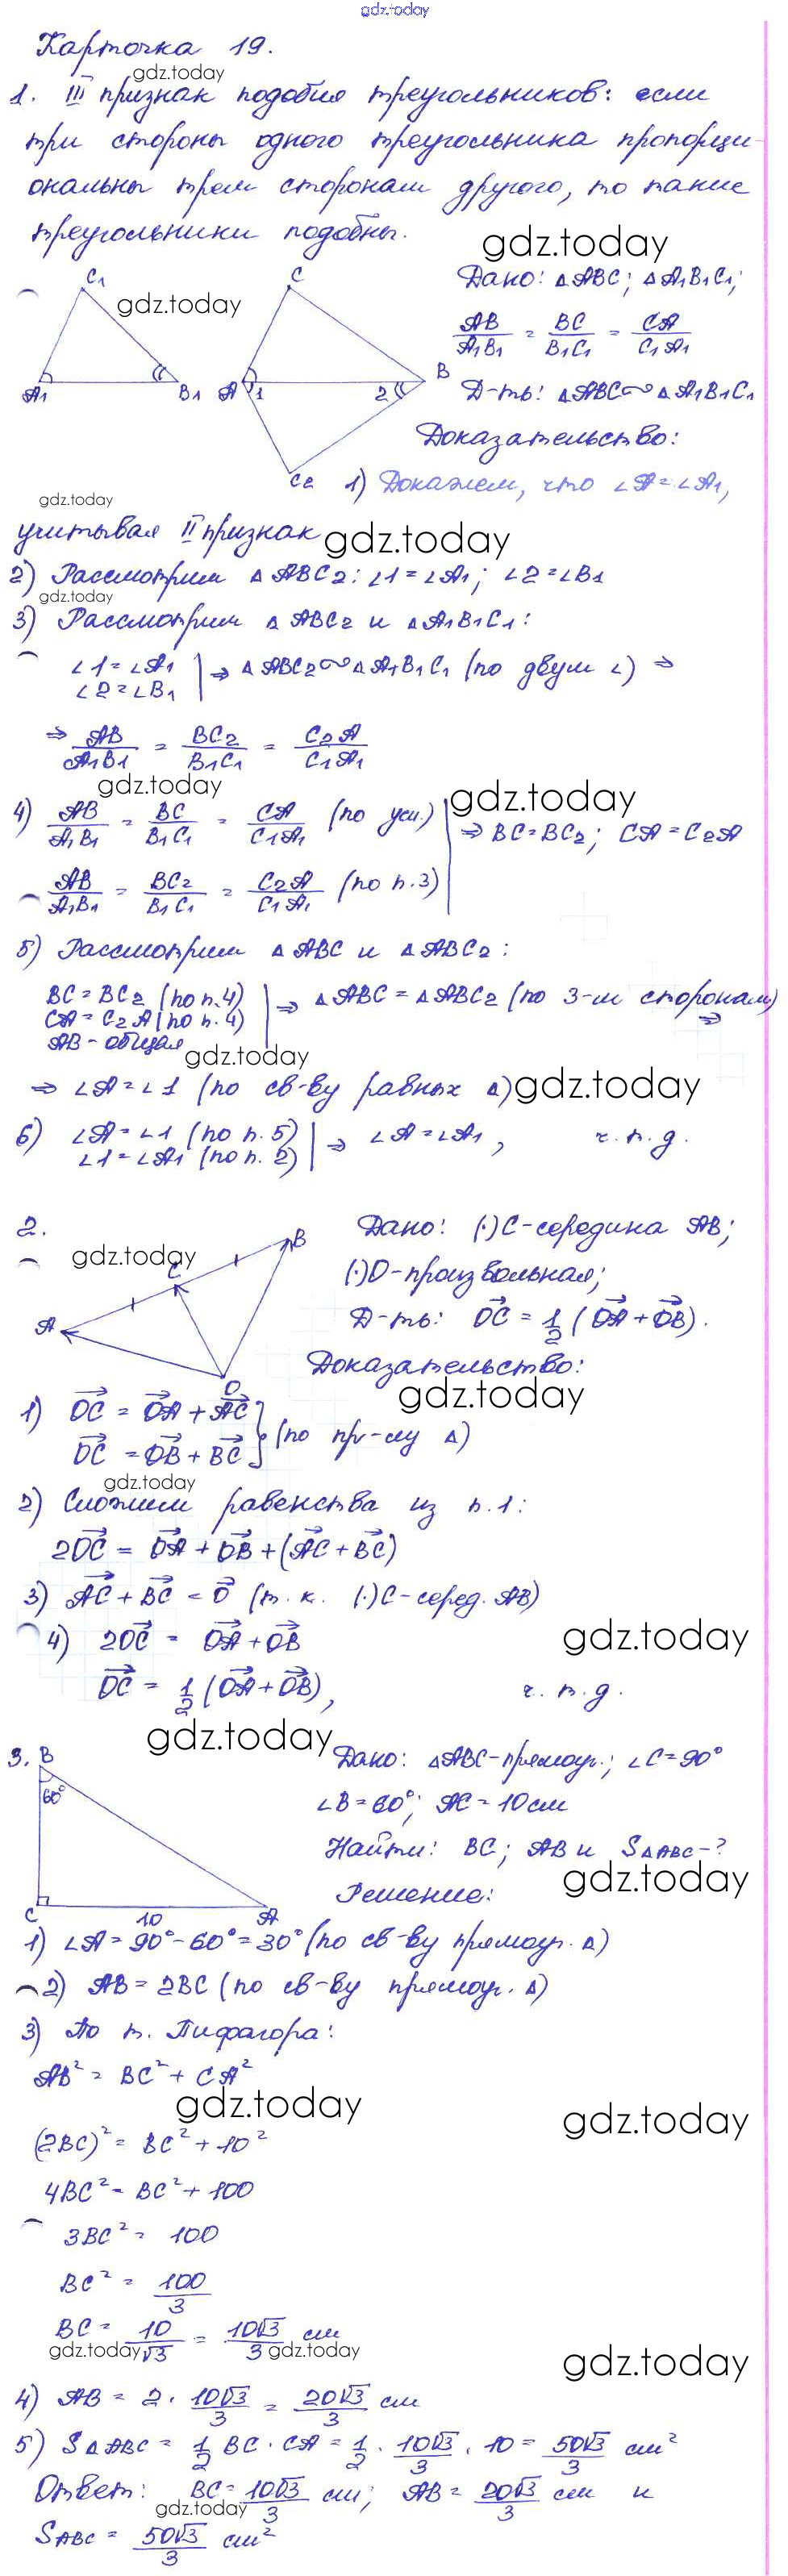 gdz.today
Карточка 19.
gdz.today
1. III признак подобия треугольников: если
три стороны одного треугольника пропорци-
ональны трем сторонам другого, то такие
треугольники подобны.
gdz.today
C1 gdz.today C Дано: △ABC; △A1B1C1;
AB/A1B1 = BC/B1C1 = CA/C1A1
A1 B1 A 1 2 B Д-ть: △ABC∾△A1B1C1
Доказательство:
C2 1) Докажем, что ∠A=∠A1,
gdz.today
учитывая II признак gdz.today
2) Рассмотрим △ABC2: ∠1=∠A1; ∠2=∠B1
gdz.today
3) Рассмотрим △ABC2 и △A1B1C1:
∠1=∠A1 | ⇒ △ABC2∾△A1B1C1 (по двум ∠) ⇒
∠2=∠B1
⇒ AB/A1B1 = BC2/B1C1 = C2A/C1A1
gdz.today gdz.today
4) AB/A1B1 = BC/B1C1 = CA/C1A1 (по усл.) | ⇒ BC=BC2; CA=C2A
AB/A1B1 = BC2/B1C1 = C2A/C1A1 (по п.3)
5) Рассмотрим △ABC и △ABC2:
BC=BC2 (по п.4) | ⇒ △ABC=△ABC2 (по 3-м сторонам) ⇒
CA=C2A (по п.4)
AB-общая
gdz.today
⇒ ∠A=∠1 (по св-ву равных △) gdz.today
6) ∠A=∠1 (по п.5) | ⇒ ∠A=∠A1, ч.т.д.
∠1=∠A1 (по п.2)
2. B Дано: (·)C-середина AB;
gdz.today C (·)O-произвольная;
A Д-ть: OC→ = 1/2 (OA→+OB→).
O Доказательство:
gdz.today
1) OC→ = OA→ + AC→ } (по пр-лу △)
OC→ = OB→ + BC→
gdz.today
2) Сложим равенства из п.1:
2OC→ = OA→ + OB→ + (AC→ + BC→)
3) AC→ + BC→ = 0→ (т.к. (·)C-серед. AB)
4) 2OC→ = OA→ + OB→ gdz.today
OC→ = 1/2 (OA→+OB→), ч.т.д.
gdz.today
3. B Дано: △ABC-прямоуг.; ∠C=90°
60° ∠B=60°; AC=10см
Найти: BC; AB и S△ABC-?
gdz.today
C 10 A Решение:
1) ∠A=90°-60°=30° (по св-ву прямоуг. △)
2) AB=2BC (по св-ву прямоуг. △)
3) По т. Пифагора:
AB²=BC²+CA²
gdz.today gdz.today
(2BC)²=BC²+10²
4BC²=BC²+100
3BC²=100
BC²=100/3
BC=10/√3=10√3/3 см
gdz.today gdz.today gdz.today
4) AB=2·10√3/3=20√3/3 см
5) S△ABC=1/2 BC·CA=1/2·10√3/3·10=50√3/3 см²
Ответ: BC=10√3/3 см; AB=20√3/3 см и
gdz.today
SABC=50√3/3 см²